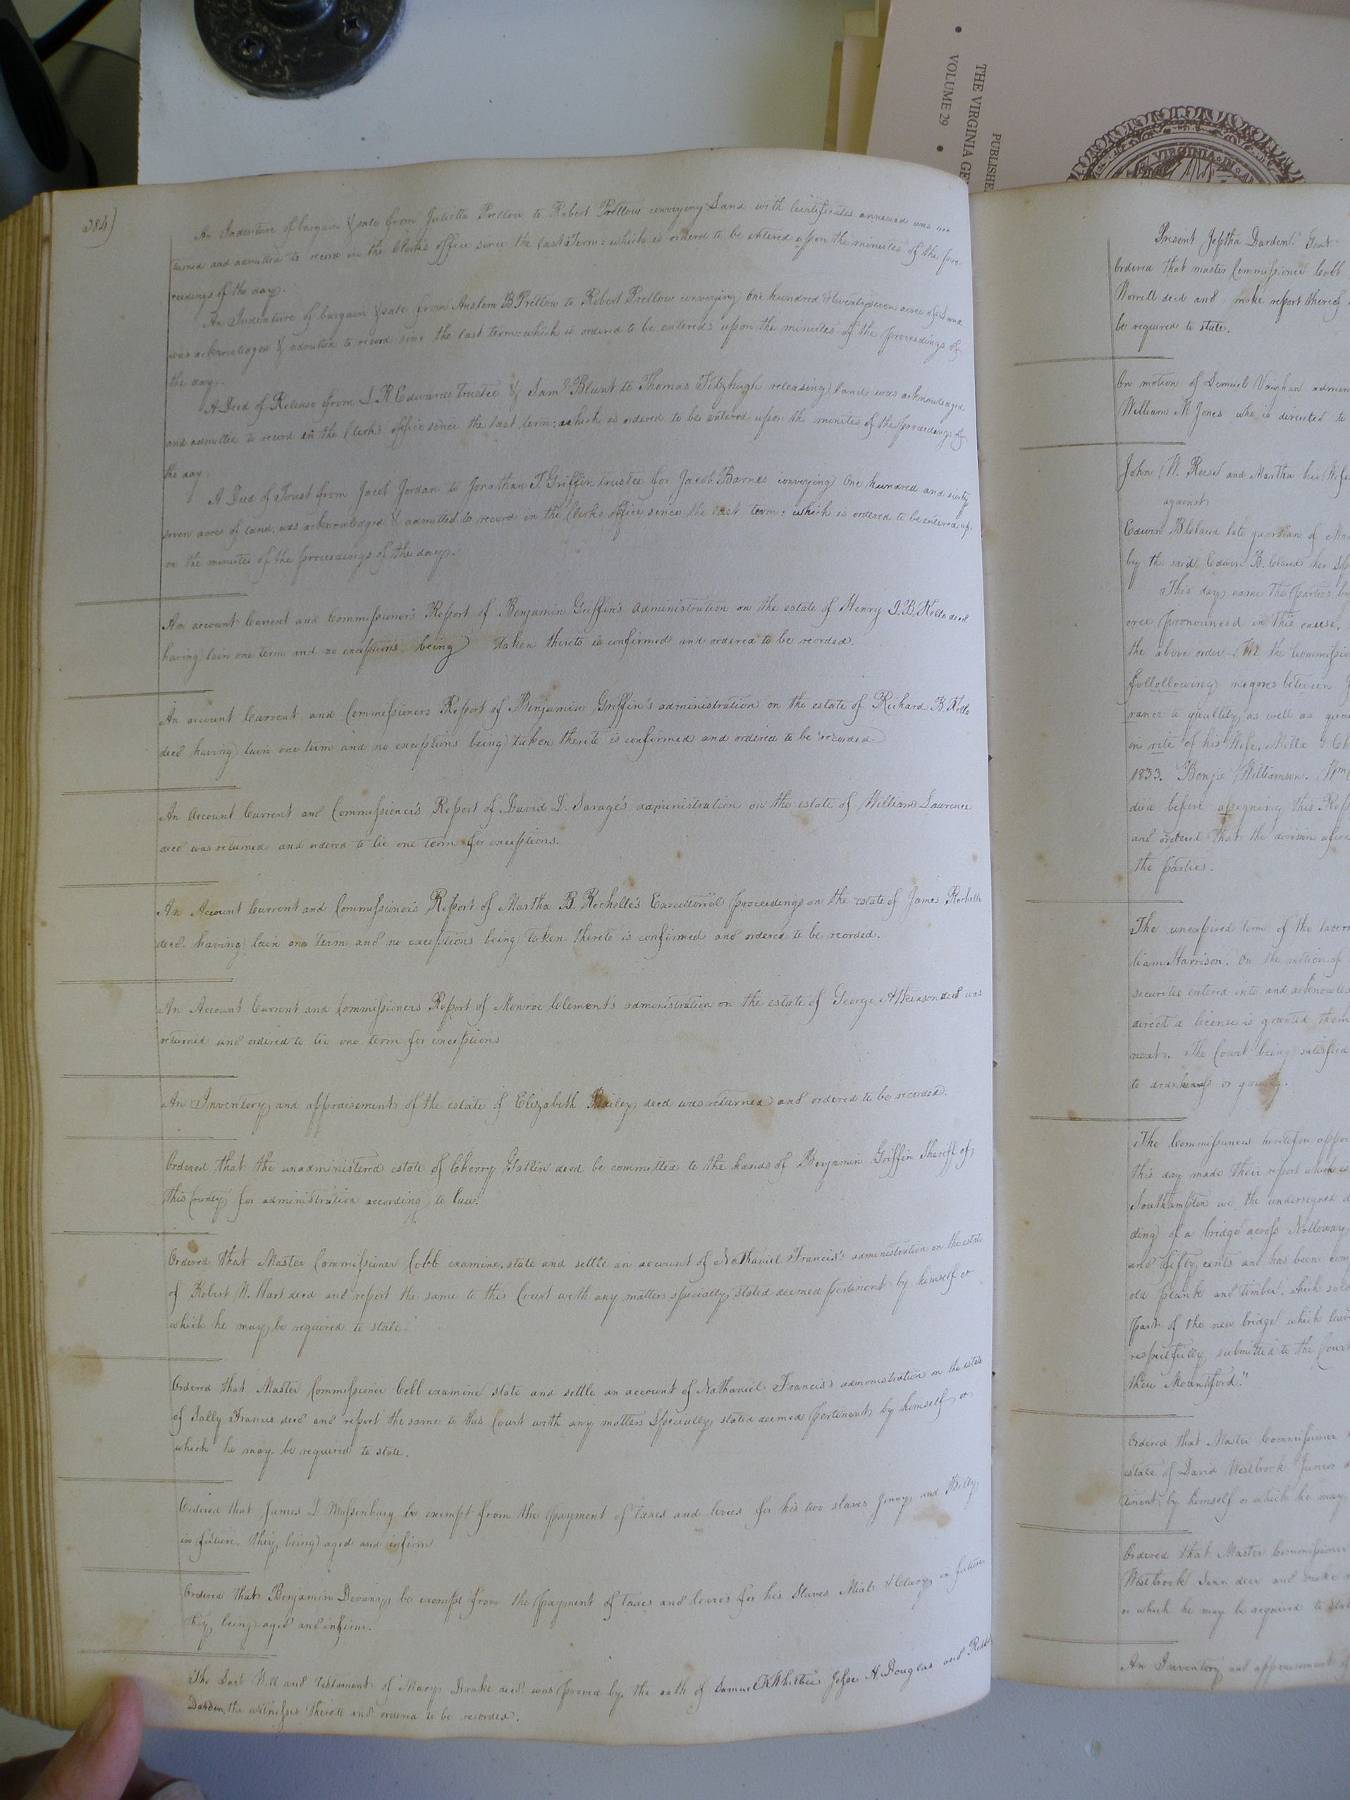 384)
An Indenture of bargain & sale from Julietta Pretlow to Robert Pretlow conveying Land with Certificates annexed was
turned and admitted to record in the Clerks office since the last Term: which is ordered to be entered upon the minutes of the pro-
ceedings of the day.
An Indenture of bargain & sale from Anslem B Pretlow to Robert Pretlow conveying One hundred & twenty seven acres of Land
was acknowledged & admitted to record since the last term: which is ordered to be entered upon the minutes of the proceedings of
the day.
A Deed of Release from L R Edwards trustee & Saml Blunt to Thomas Fitzhugh releasing land was acknowledged
and admitted to record in the Clerks office since the last term: which is ordered to be entered upon the minutes of the proceedings of
the day.
A Deed of Trust from Jacob Jordan to Jonathan T Griffin trustee for Jacob Barnes conveying One hundred and sixty
seven acres of land, was acknowledged & admitted to record in the Clerks office since the last term: which is ordered to be entered up-
on the minutes of the proceedings of the day.
An account Current and Commissioner's Report of Benjamin Griffin's administration on the estate of Henry J. B. decd
having lain one term and no exceptions being taken thereto is confirmed and ordered to be recorded.
An account Current and Commissioners Report of Benjamin Griffin's administration on the estate of Richard B.
decd having lain one term and no exceptions being taken thereto is confirmed and ordered to be recorded
An Account Current and Commissioner's Report of David D. Savage's administration on the estate of William Lawrence
decd was returned and ordered to lie one term for exceptions.
An Account Current and Commissioners Report of Martha B. Rochelle's Executorial proceedings on the estate of James Rochelle
decd. having lain one term and no exceptions being taken thereto is confirmed and ordered to be recorded.
An Account Current and Commissioners Report of Monroe Clement's administration on the estate of George Atkinson decd was
returned and ordered to lie one term for exceptions
An Inventory and appraisement of the estate of Elizabeth Bailey decd was returned and ordered to be recorded.
Ordered that the unadministered estate of Cherry Gatlin decd be committed to the hands of Benjamin Griffin Sheriff of
this County for administration according to law.
Ordered that Master Commissioner Cobb examine, state and settle an account of Nathaniel Francis's administration on the estate
of Robert W. Hart decd and report the same to this Court with any matters specially stated deemed pertinent by himself or
which he may be required to state.
Ordered that Master Commissioner Cobb examine state and settle an account of Nathaniel Francis's administration on the estate
of Sally Francis decd and report the same to this Court with any matters Specially stated deemed pertinent by himself or
which he may be required to state.
Ordered that James L Massenburg be exempt from the payment of taxes and levies for his two slaves Jinny and Billy
in future. they being aged and infirm
Ordered that Benjamin Devany be exempt from the payment of taxes and levies for his Slaves & Clary in future
they being aged and infirm.
The Last Will and testament of Mary Drake decd was proved by the oath of Samuel K Whithie Jesse H. Douglas and
Darden, the witnesses thereto and ordered to be recorded.
THE VIRGINIA GE
VOLUME 29
PUBLISHE
VIRGINIA
Present Jeptha Darden Gent
Ordered that master Commissioner Cobb
Worrell decd and make report thereof
be required to state.
On motion of Lemuel Vaughan
William M Jones who is directed to
John W. Reese and Martha his Wife
against
Edwin B Claud late guardian of
by the said Edwin B. Claud her
This day came the parties by
oree pronounced in this cause,
the above order We the Commission
following negroes between
rance to quality as well as quan
in rite of his Wife,
1833. Benja Williamson.
died before assigning this Rep
and ordered that the division
the parties.
The unexpired term of the tavern
liam Harrison. On the motion of
securities entered into and acknowled
direct a license is granted them
ment. The Court being satisfied
to drunkenness or gaming.
The Commissioners heretofore appoi
this day made their report which is
Southampton we the undersigned
ding of a bridge across Nottoway
and fifty cents and has been
old plank and timber, which
part of the new bridge which
respectfully submitted to the Court
thew Mountford."
Ordered that Master Commissioner
estate of David Westbrook Junior
tinent by himself or which he may
Ordered that Master Commissioner
Westbrook Senr decd and make
or which he may be required to
An Inventory and appraisement